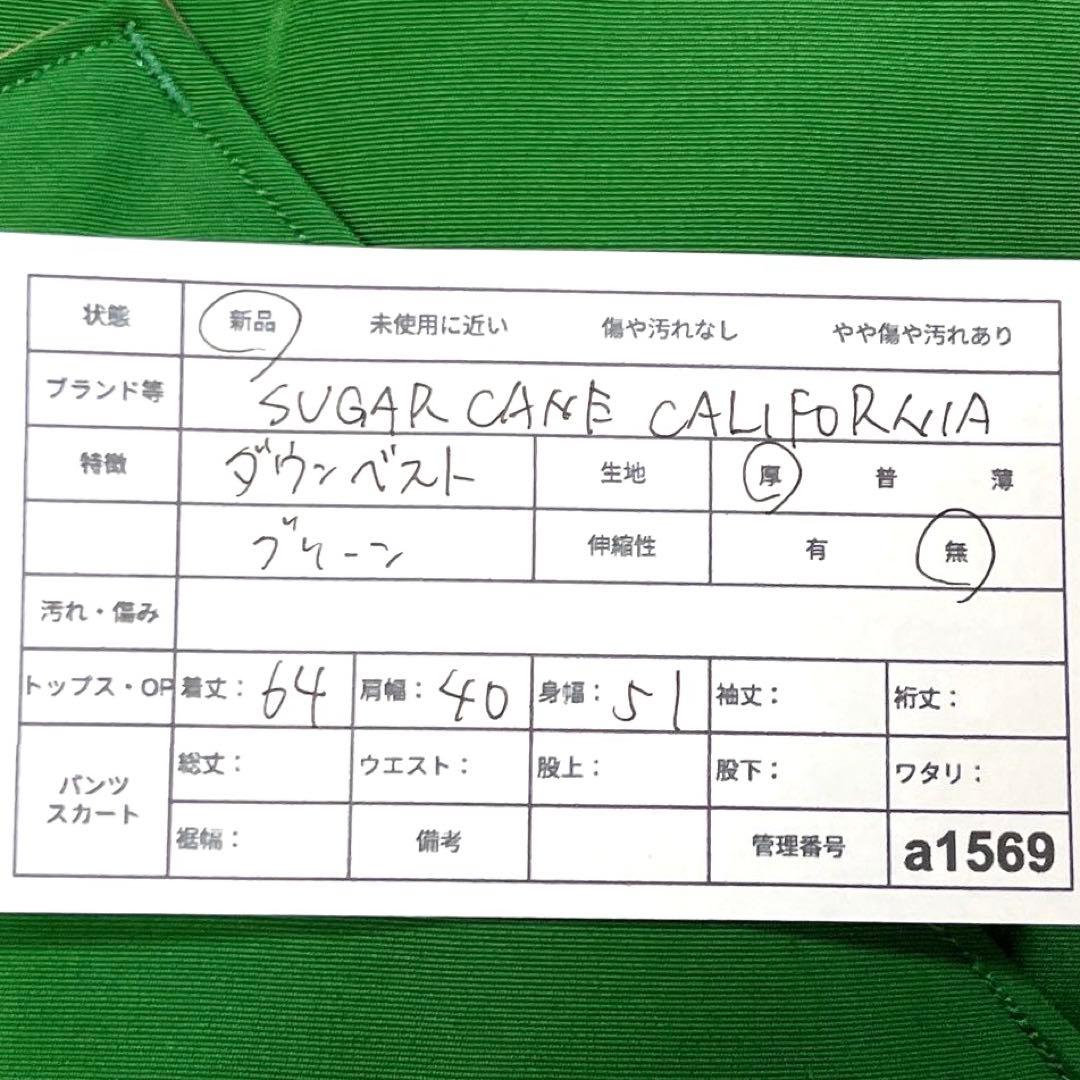 状態 新品 未使用に近い 傷や汚れなし やや傷や汚れあり
ブランド等 SUGAR CANE CALIFORNIA
特徴 ダウンベスト 生地 厚 普 薄
グリーン 伸縮性 有 無
汚れ・傷み
トップス・OP 着丈: 64 肩幅: 40 身幅: 51 袖丈: 裄丈:
パンツ スカート 総丈: ウエスト: 股上: 股下: ワタリ:
裾幅: 備考 管理番号 a1569